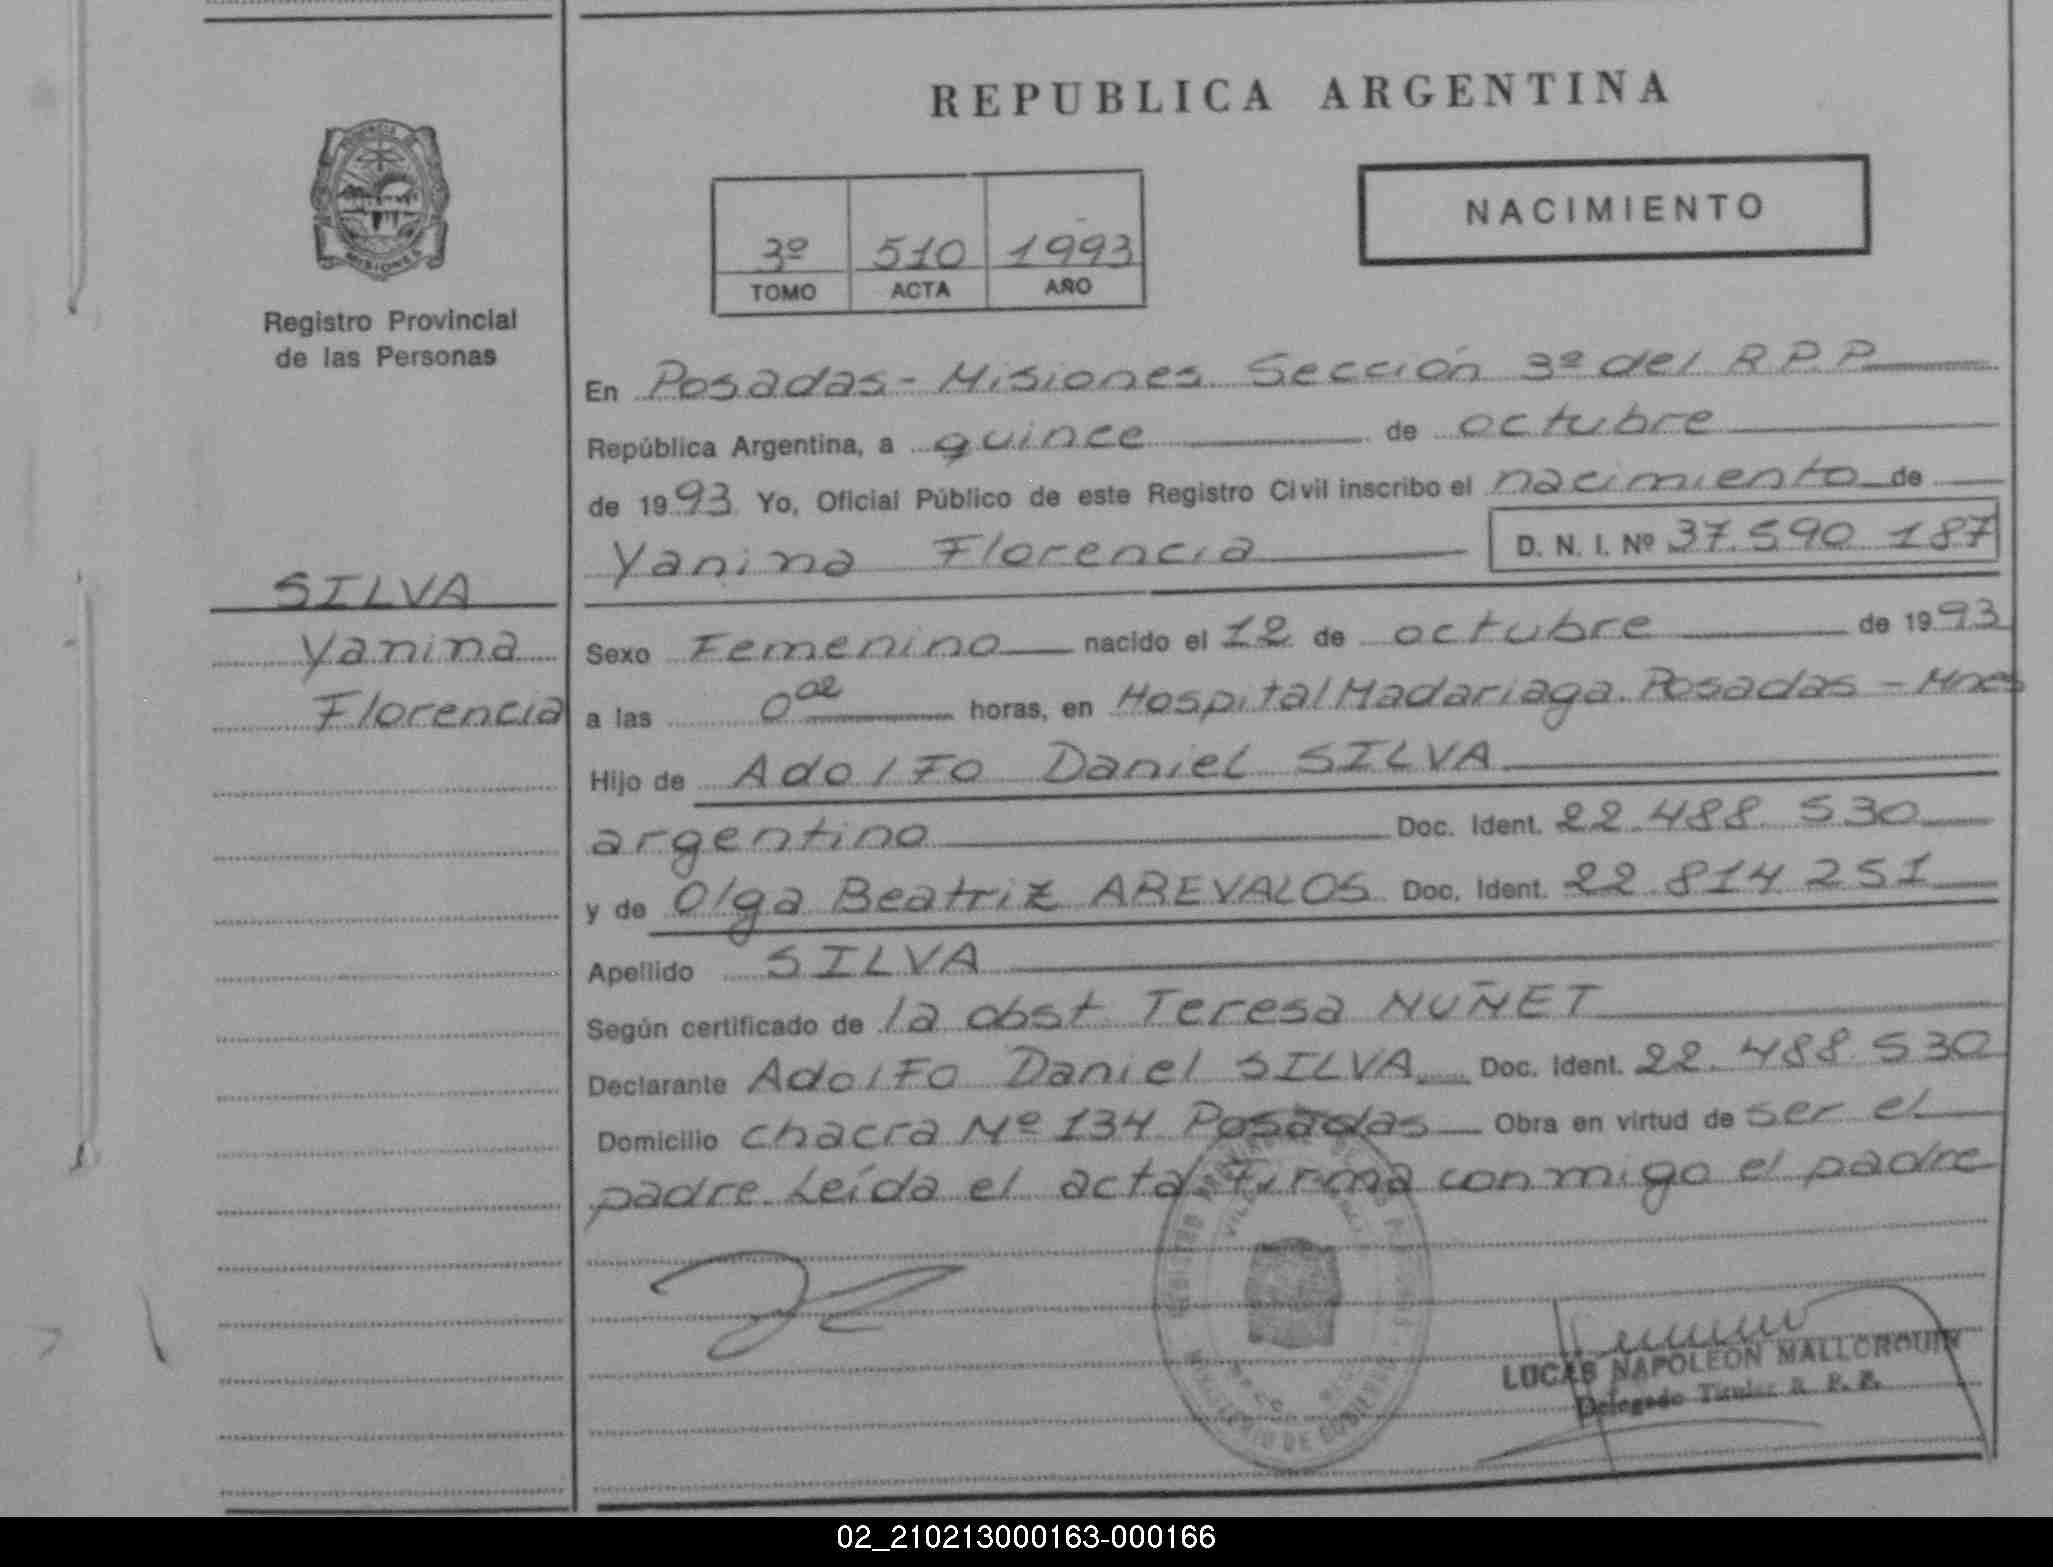 REPUBLICA ARGENTINA
NACIMIENTO
3º 510 1993
TOMO ACTA AÑO
MISIONES
Registro Provincial
de las Personas
SILVA
Yanina
Florencia
En Posadas - Misiones Sección 3º del R.P.P
República Argentina, a quince de octubre
de 1993 Yo, Oficial Público de este Registro Civil inscribo el nacimiento de
Yanina Florencia D. N. I. Nº 37.590 187
Sexo Femenino nacido el 12 de octubre de 1993
a las 0 02 horas, en Hospital Madariaga. Posadas - Mnes
Hijo de Adolfo Daniel SILVA
argentino Doc. Ident. 22.488.530
y de Olga Beatriz AREVALOS Doc. Ident. 22 814 251
Apellido SILVA
Según certificado de la obst Teresa NUÑET
Declarante Adolfo Daniel SILVA Doc. Ident. 22.488.530
Domicilio chacra Nº 134 Posadas Obra en virtud de ser el
padre. Leída el acta Firma conmigo el padre
MINISTERIO DE GOBIERNO
LUCAS NAPOLEON MALLORQUIN
Delegado Titular R. P. P.
02_210213000163-000166